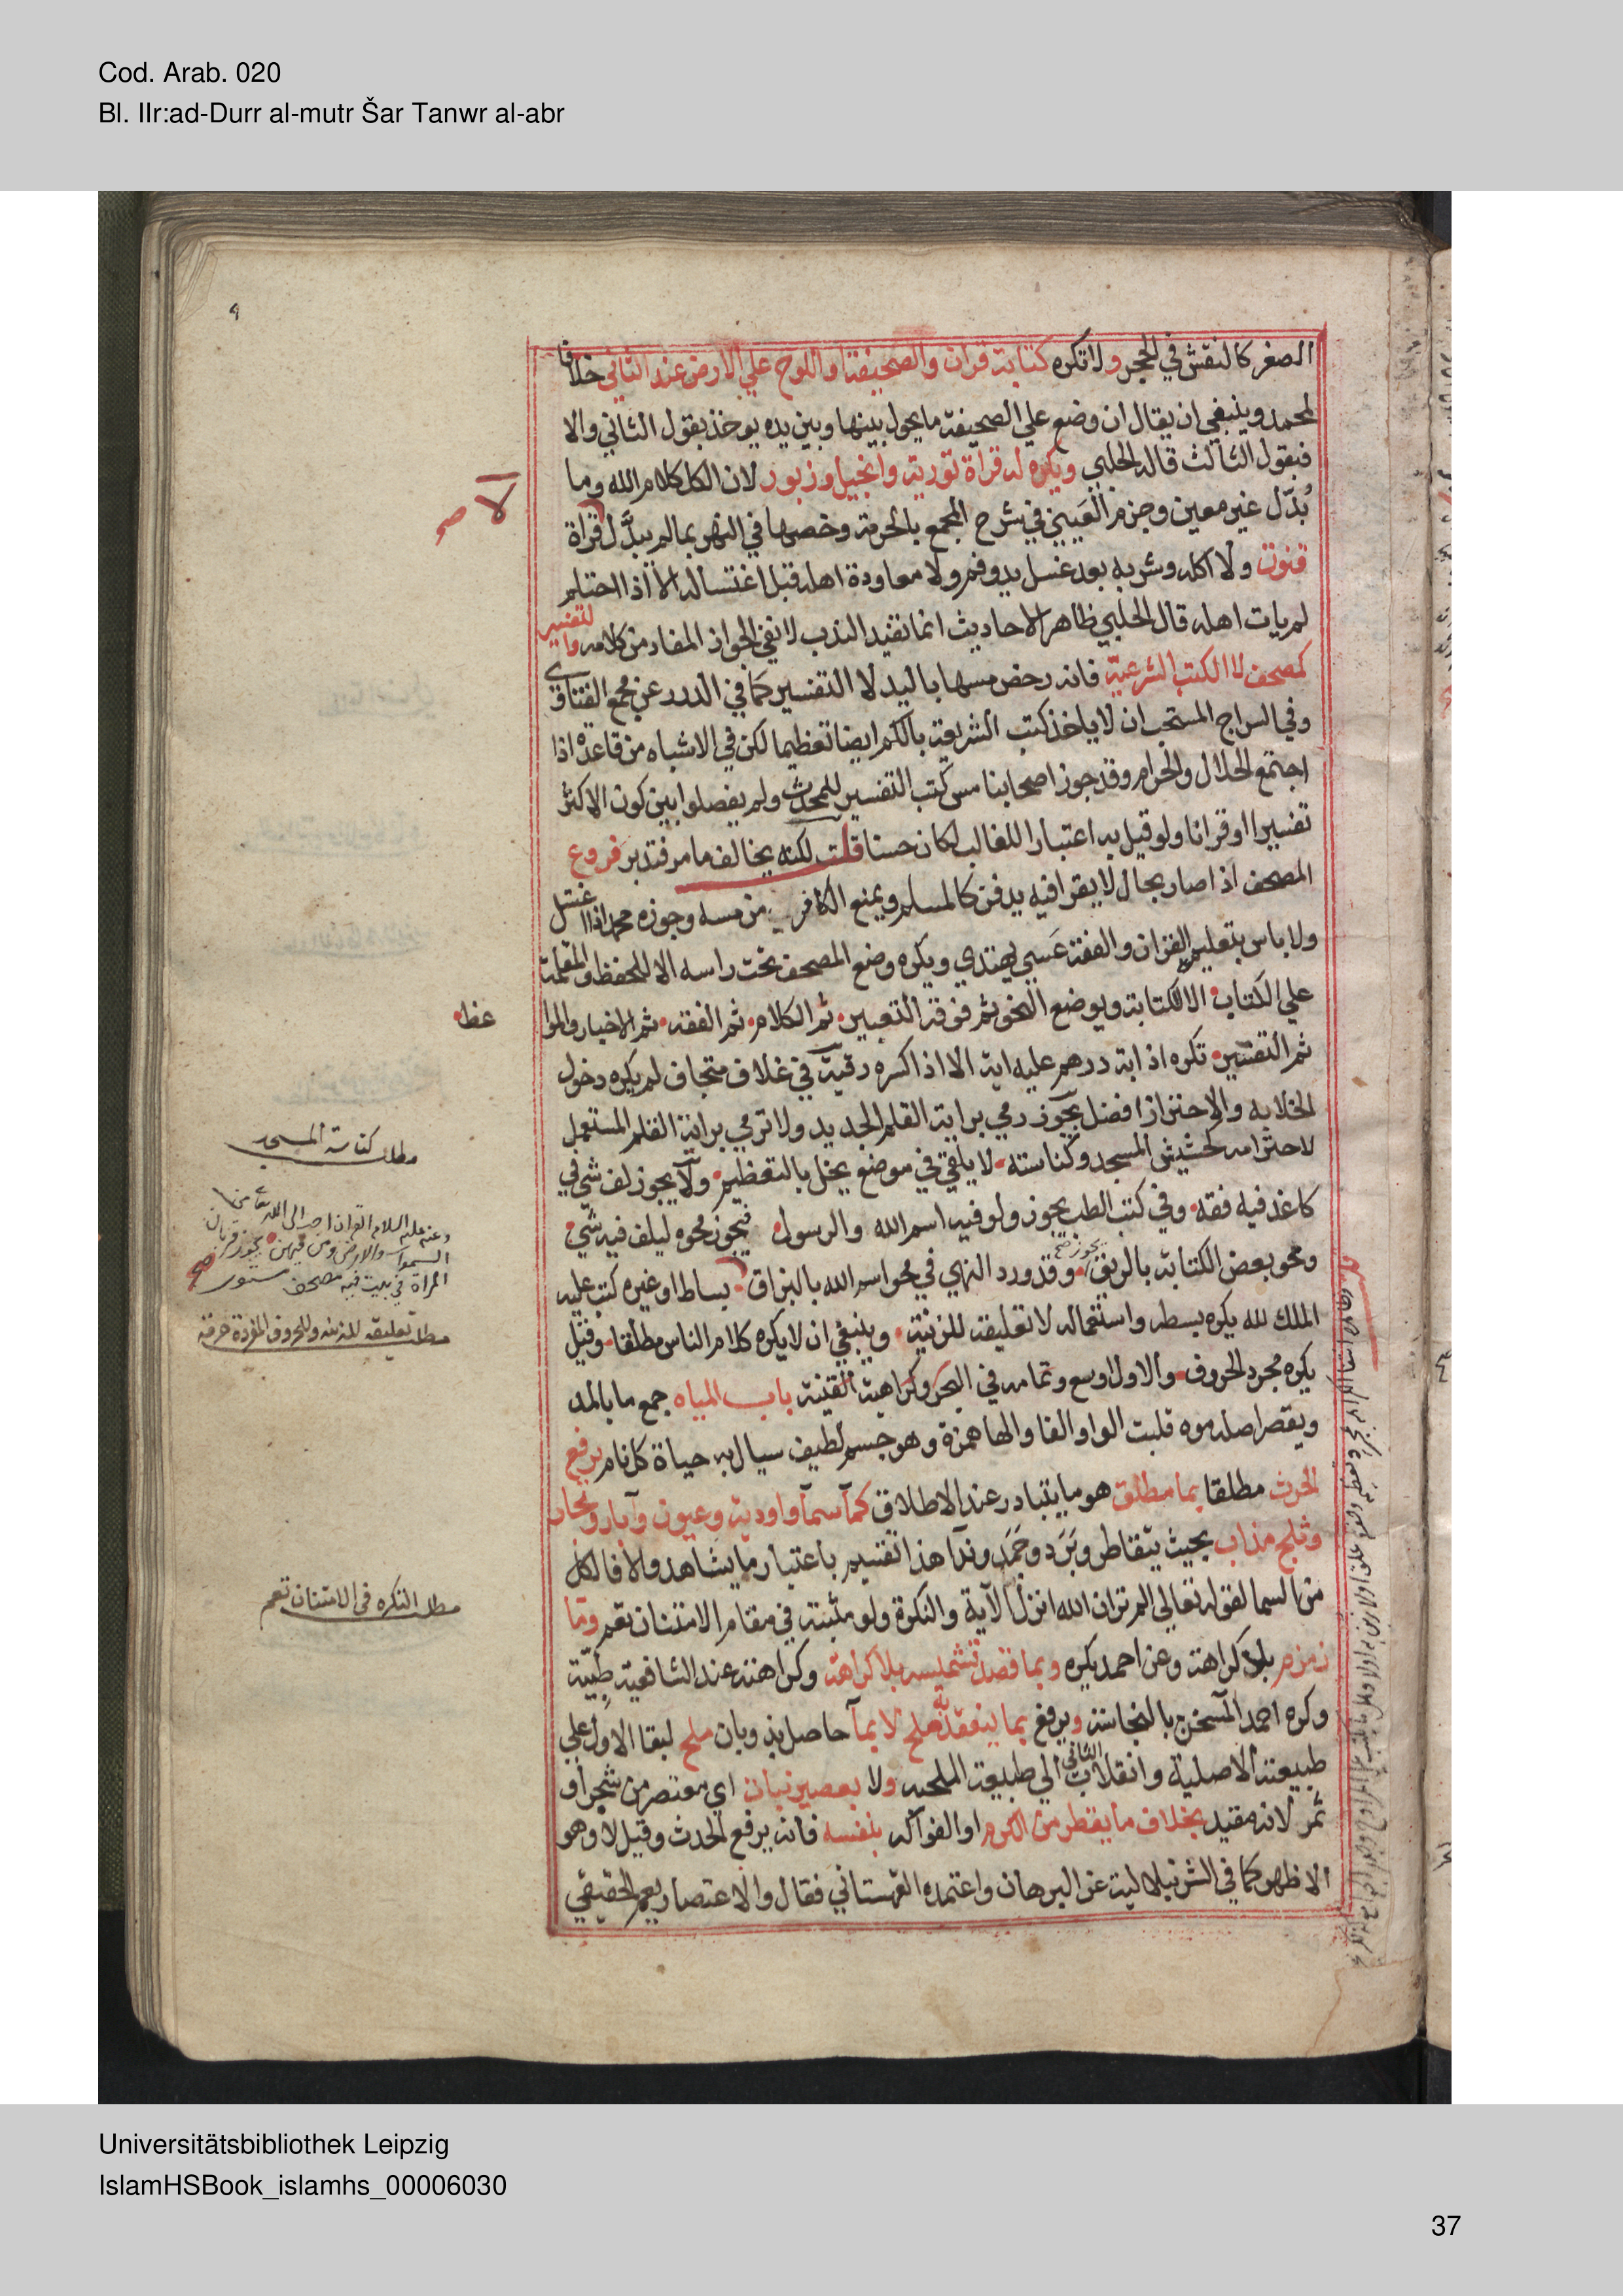 Cod. Arab. 020
Bl. IIr:ad-Durr al-mutr Šar Tanwr al-abr
٩
الصغر كالنقش في الحجر ولا تكره كتابة قران والصحيفة او اللوح علي الارض عند الثاني خلافا
لمحمد وينبغي ان يقال ان وضع علي الصحيفة ما يحول بينها وبين يده يوخذ بقول الثاني والا
فبقول الثالث قاله الحلبي ويكره له قراة تورية وانجيل وزبور لان الكل كلام الله وما
بُدّل غير معين وجزم العَيني في شرح المجمع بالحرمة وخصها في النهر بما لم يبدَّل لا قراة
قنوت ولا اكله وشربه بعد غسل يد وفم ولا معاودة اهله قبل اغتساله الا اذا احتلم
لم يات اهله قال الحلبي ظاهر الاحاديث انما تفيد الندب لا نفي الجواز المفاد من كلامه والتفسير
كمصحف لا الكتب الشرعية فانه رخص مسها باليد لا التفسير كما في الدرر عن مجمع الفتاوي
وفي السراج المستحب ان لا ياخذ كتب الشريعة بالكم ايضا تعظيما لكن في الاشباه من قاعدة اذا
اجتمع الحلال والحرام وقد جوز اصحابنا مس كتب التفسير للمحدث ولم يفصلوا بين كون الاكثر
تفسيرا او قرانا ولو قيل به اعتبارا للغالب لكان حسنا قلت لكنه يخالف ما مر فتدبر فروع
المصحف اذا صار بحال لا يقرا فيه يدفن كالمسلم ويمنع الكافر من مسه وجوزه محمد اذا اغتسل
ولا باس بتعليم القران والفقه عَسي يهتدي ويكره وضع المصحف تحت راسه الا للحفظ والمقلمة
علي الكتاب الا للكتابة ويوضع النحو ثم فوقه التعبير ثم الكلام ثم الفقه ثم الاخبار والموا
عظ
ثم التفسير تكره اذابة درهم عليه اية الا اذا كسره رقية في غلاف متجاف لم يكره دخول
الخلا به والاحتراز افضل يجوز رمي براية القلم الجديد ولا ترمي براية القلم المستعمل
لاحترامه كحشيش المسجد وكناسته لا يلقي في موضع يخل بالتعظيم ولا يجوز لف شي في
كاغد فيه فقه وفي كتب الطب يجوز ولو فيه اسم الله والرسول فيجوز محوه ليلف فيه شي
ومحو بعض الكتابة بالريق يجوز صح وقد ورد النهي في محو اسم الله بالبزاق بساط او غيره كتب عليه
الملك لله يكره بسطه واستعماله لا تعليقه للزينة وينبغي ان لا يكره كلام الناس مطلقا وقيل
يكره مجرد الحروف والاول اوسع وتمامه في البحر وكراهية القنية باب المياه جمع ما بالمد
ويقصر اصله موه قلبت الواو الفا والها همزة وهو جسم لطيف سيال به حياة كل نام يرفع
الحدث مطلقا بما مطلق هو ما يتبادر عند الاطلاق كماء سماء واودية وعيون وآبار وبحار
وثلج مذاب بحيث يتقاطر وبَرَد وجَمَد وندا هذا تقسيم باعتبار ما يشاهد والا فالكل
من السما لقوله تعالي الم تر ان الله انزل الآية والنكرة ولو مثبتة في مقام الامتنان تعم وما
زمزم بلا كراهة وعن احمد يكره وبما قصد تشميسه بلا كراهة وكراهته عند الشافعية طبية
وكره احمد المسخن بالنجاسة ويرفع بما ينعقد به ملح لا بما حاصل بذوبان ملح لبقا الاول علي
طبيعته الاصلية وانقلاب الثاني الي طبيعة الملحية ولا بعصير نبات اي معتصر من شجر او
ثمر لانه مقيد بخلاف ما يقطر من الكرم او الفواكه بنفسه فانه يرفع الحدث وقيل لا وهو
الاظهر كما في الشرنبلالية عن البرهان واعتمده القهستاني فقال والاعتصار يعم الحقيقي
لا صح
مطلب كناسة المسجد
وعنه عليه السلام القران احب الي الله تعالي من
السموات والارض ومن فيهن يجوز قربان
المراة في بيت فيه مصحف مستور صح
مطلب تعليقه للزينة والحروف المفردة حرفة
مطلب النكرة في الامتنان تعم
Universitätsbibliothek Leipzig
IslamHSBook_islamhs_00006030
37